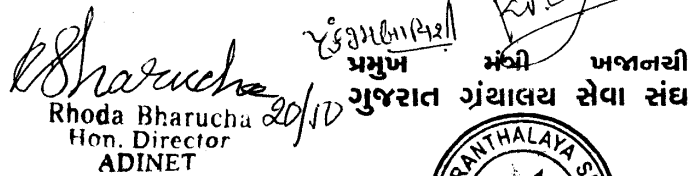 RBharucha 20/10
Rhoda Bharucha
Hon. Director
ADINET
પ્રમુખ મંત્રી ખજાનચી
ગુજરાત ગ્રંથાલય સેવા સંઘ
RANTHALAYA S